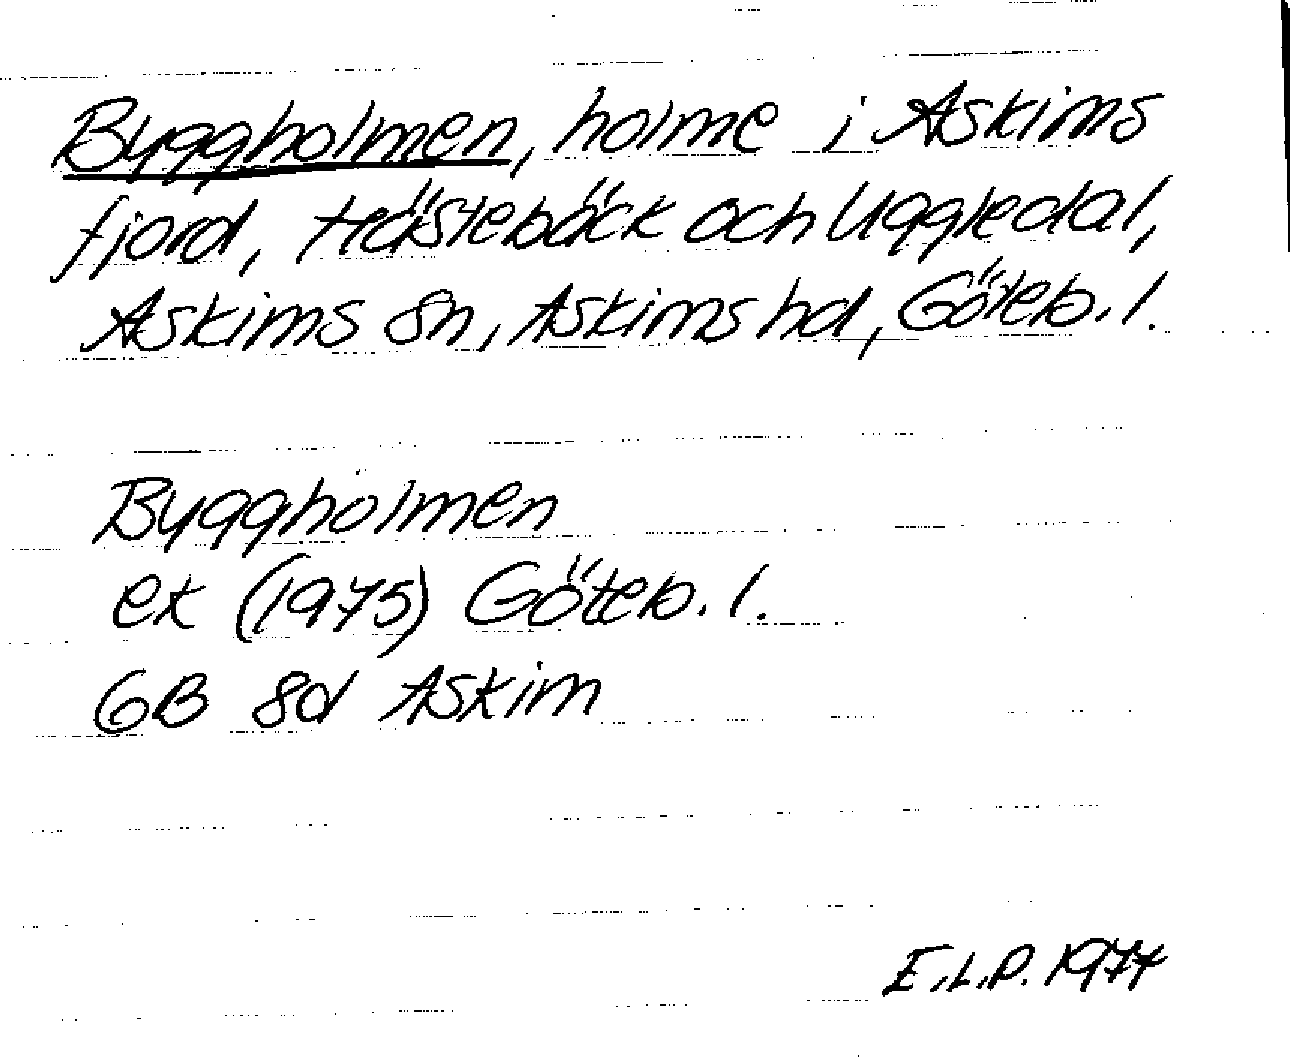 Byggholmen, holme i Askims
fjord, Hästebäck och Uggledal,
Askims sn, Askims hd, Göteb. l.
Byggholmen
ek (1975) Göteb. l.
6B 8d Askim
E.L.P. 1977